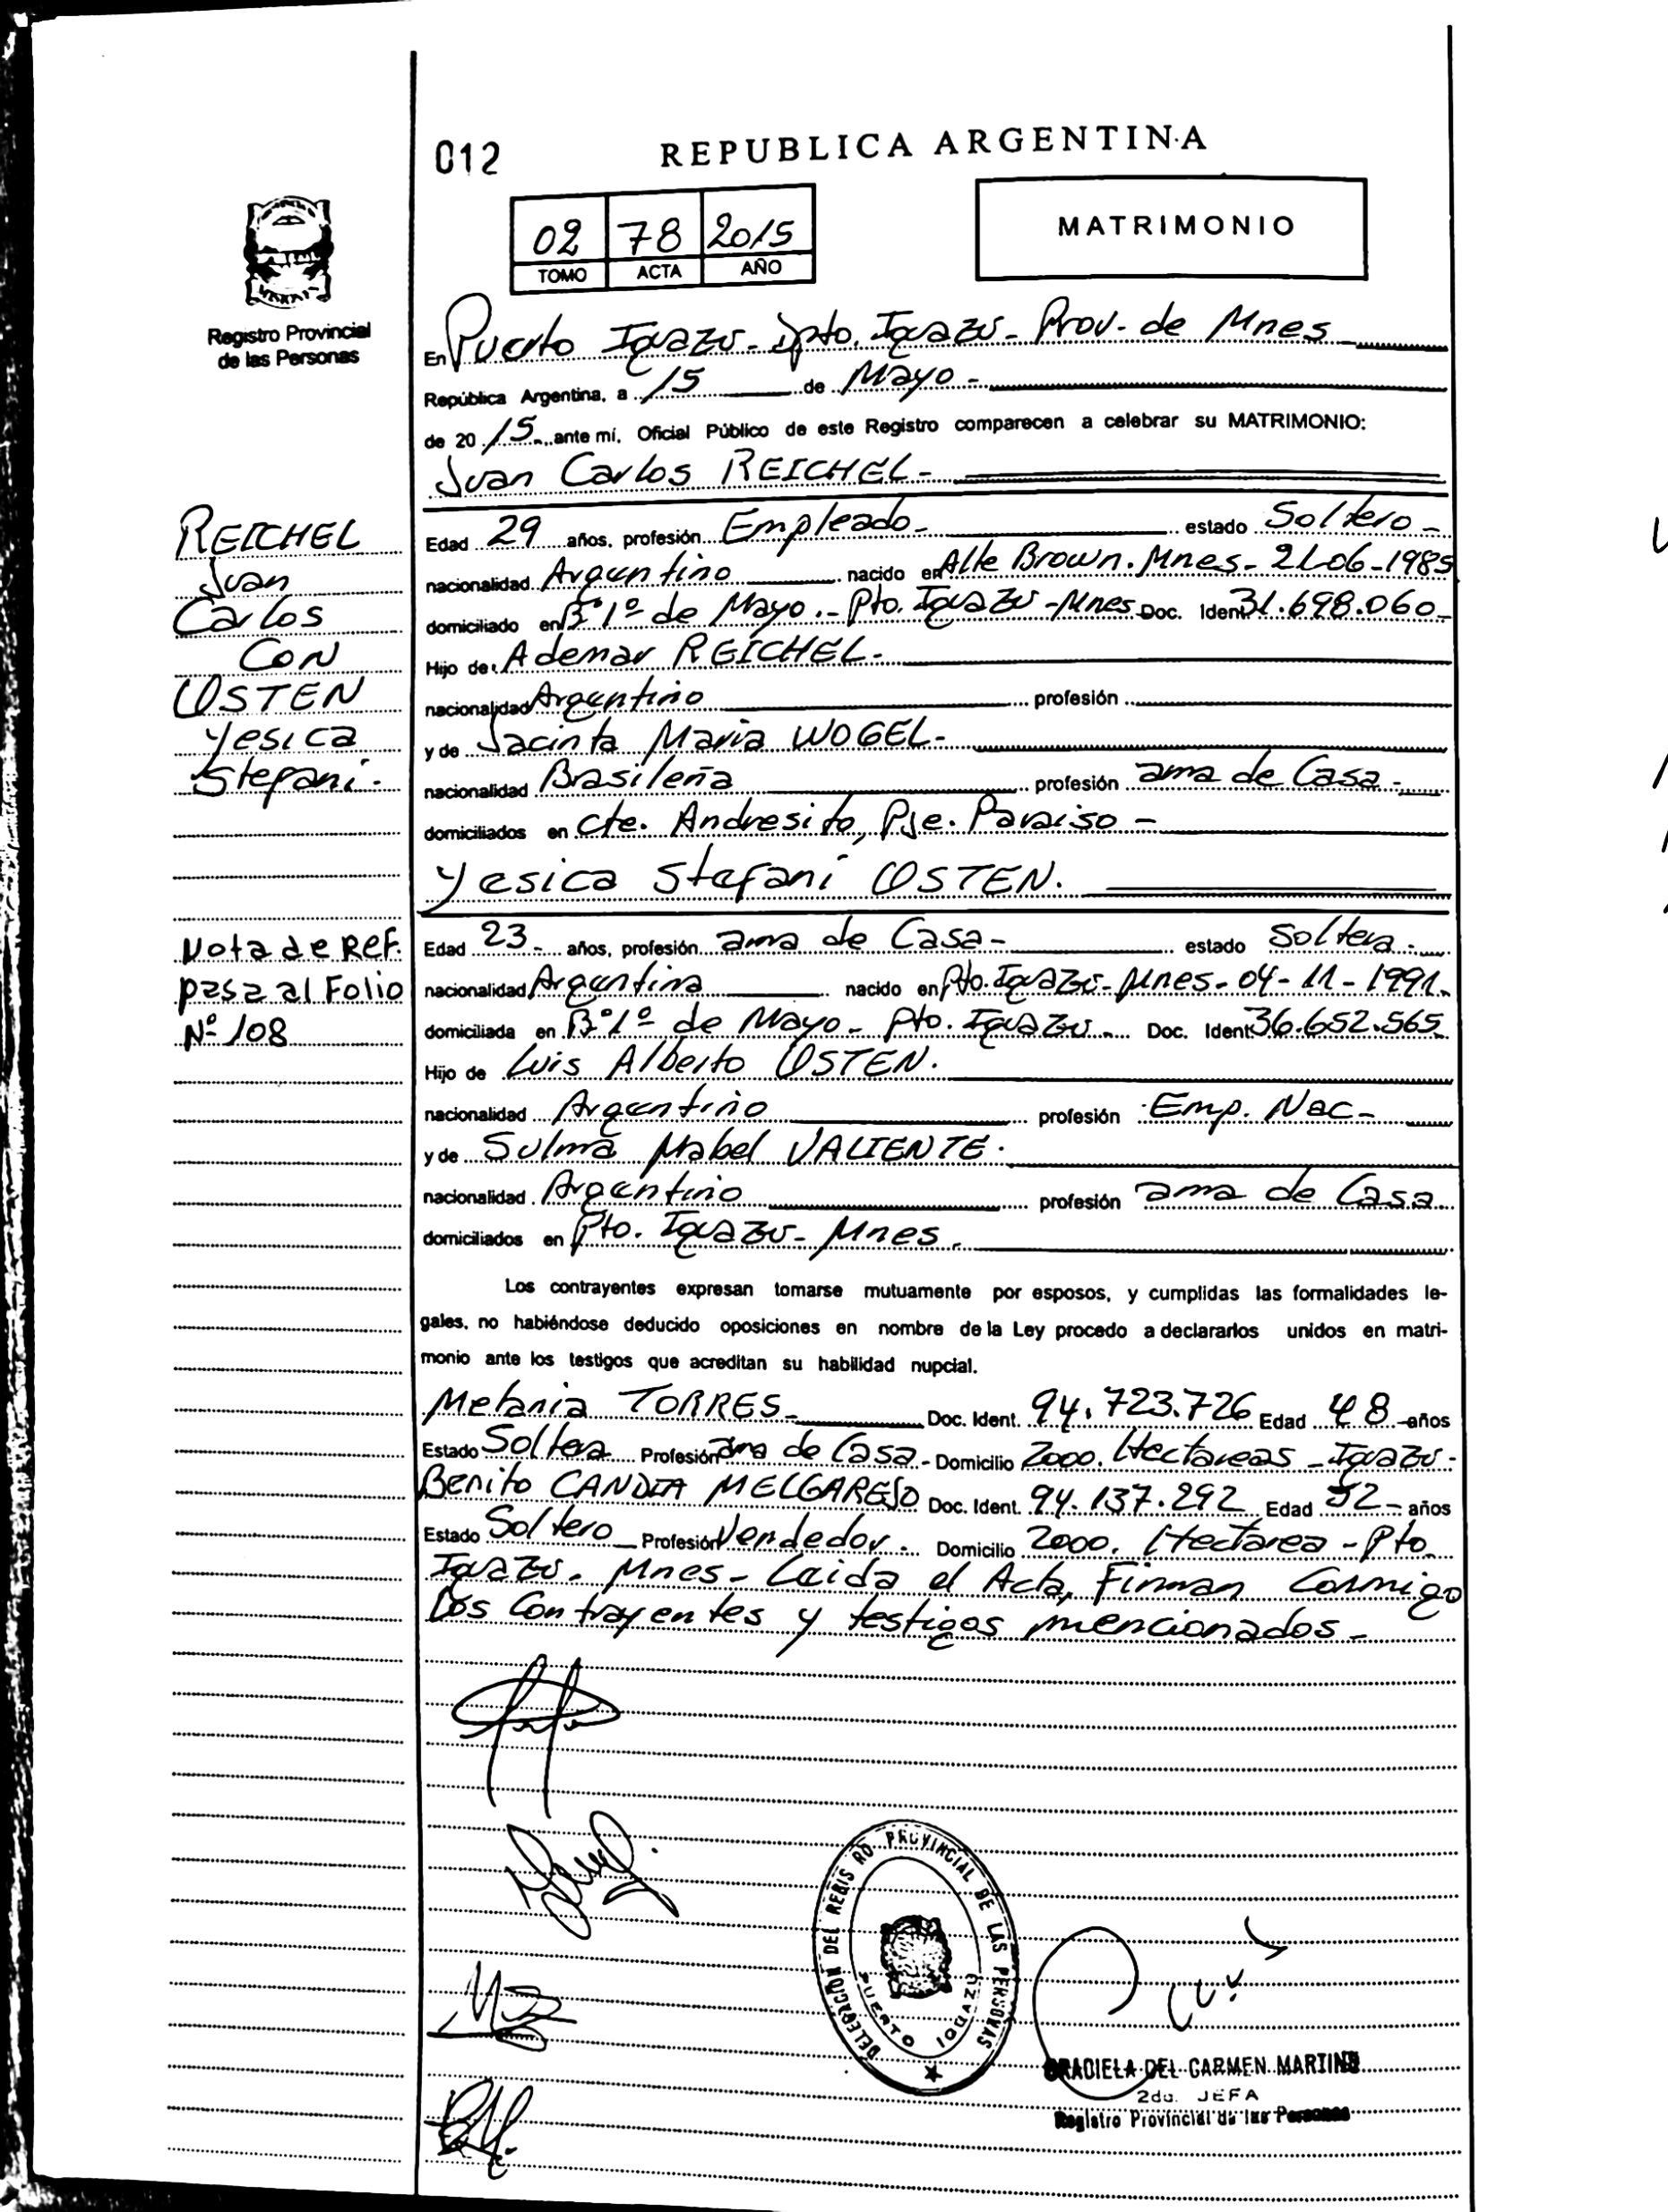 012
REPUBLICA ARGENTINA
02 78 2015
TOMO ACTA AÑO
MATRIMONIO
Registro Provincial
de las Personas
En Puerto Iguazú - Dpto. Iguazú - Prov. de Mnes
República Argentina, a 15 de Mayo -
de 20 15 ante mí, Oficial Público de este Registro comparecen a celebrar su MATRIMONIO:
Juan Carlos REICHEL -
Edad 29 años, profesión Empleado - estado Soltero -
nacionalidad Argentino nacido en Alte Brown. Mnes - 21-06-1985
domiciliado en B° 1º de Mayo.- Pto. Iguazú - Mnes Doc. Ident 31.698.060 -
Hijo de Ademar REICHEL -
nacionalidad Argentino profesión
y de Jacinta Maria WOGEL -
nacionalidad Brasileña profesión ama de Casa -
domiciliados en Cte. Andresito, Pje. Paraiso -
Yesica Stefani OSTEN.
Edad 23 - años, profesión ama de Casa - estado Soltera -
nacionalidad Argentina nacido en Pto. Iguazú - Mnes - 04 - 11 - 1991.
domiciliada en B° 1º de Mayo - Pto. Iguazú - Doc. Ident 36.652.565
Hijo de Luis Alberto OSTEN.
nacionalidad Argentino profesión Emp. Nac -
y de Sulma Mabel VALIENTE.
nacionalidad Argentino profesión ama de Casa.
domiciliados en Pto. Iguazú - Mnes.
Los contrayentes expresan tomarse mutuamente por esposos, y cumplidas las formalidades le-
gales, no habiéndose deducido oposiciones en nombre de la Ley procedo a declararlos unidos en matri-
monio ante los testigos que acreditan su habilidad nupcial.
Melania TORRES - Doc. Ident. 94.723.726 Edad 48 años
Estado Soltera Profesión ama de Casa - Domicilio 2000. Hectareas - Iguazú -
Benito CANDIA MELGAREJO Doc. Ident. 94.137.292 Edad 52 - años
Estado Soltero Profesión Vendedor. Domicilio 2000. Hectarea - Pto
Iguazú - Mnes - Leida el Acta, Firman Conmigo
Los Contrayentes y testigos mencionados -
REICHEL
Juan
Carlos
CON
OSTEN
Yesica
Stefani -
Nota de Ref.
pasa al Folio
Nº 108
DELEGACIÓN DEL REGIS RO PROVINCIAL DE LAS PERSONAS
PUERTO IGUAZÚ
GRACIELA DEL CARMEN MARTINS
2da. JEFA
Registro Provincial de las Personas